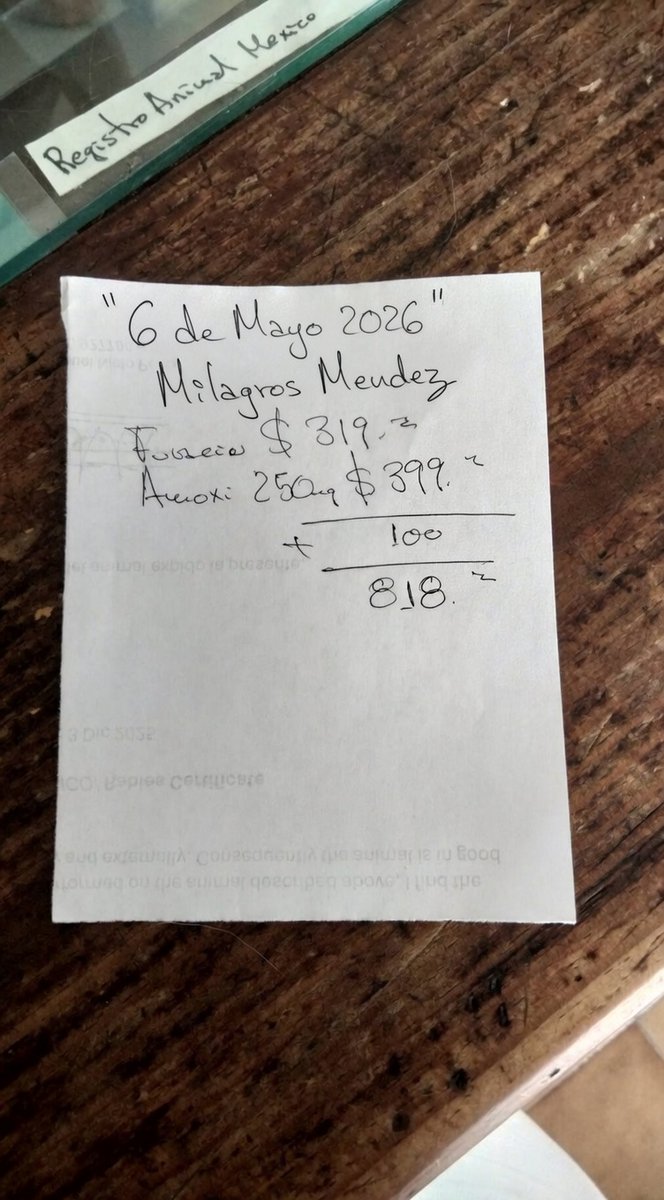 Registro Animal Mexico
"6 de Mayo 2026"
Milagros Mendez
$ 319.
Amoxi 250mg $ 399.
+ 100
818.
et animal expido la presente.
3 Dic 2025
Rabies Certificate
and externally. Consequently the animal is in good
formed on the animal described above, I find the